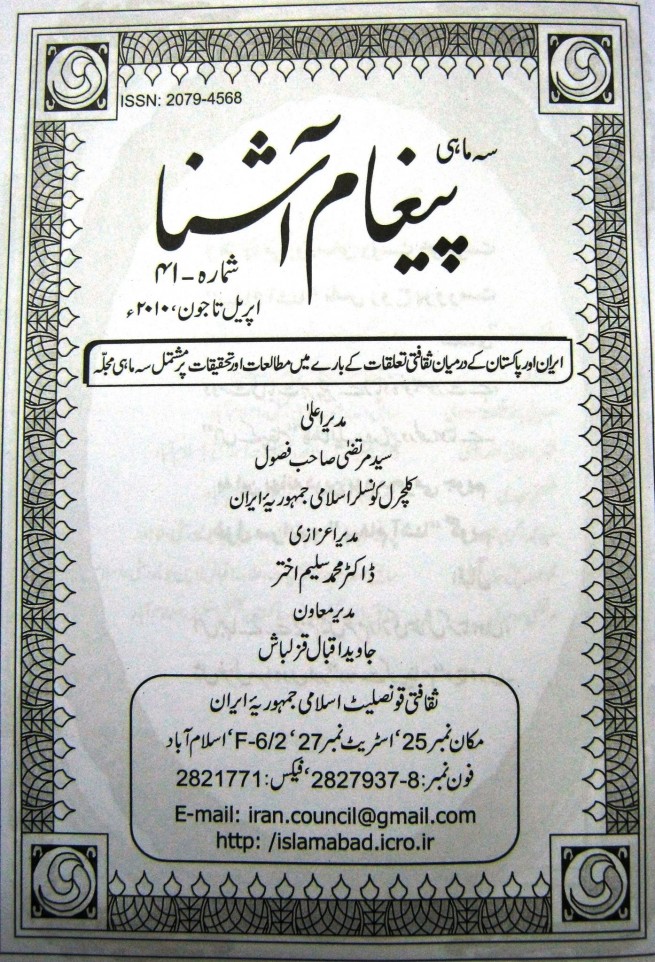 ISSN: 2079-4568
سہ ماہی
پیغام آشنا
شمارہ - ۴۱
اپریل تا جون، ۲۰۱۰ء
ایران اور پاکستان کے درمیان ثقافتی تعلقات کے بارے میں مطالعات اور تحقیقات پر مشتمل سہ ماہی مجلّہ
مدیر اعلیٰ
سید مرتضیٰ صاحب فصول
کلچرل کونسلر اسلامی جمہوریۂ ایران
مدیر اعزازی
ڈاکٹر محمد سلیم اختر
مدیر معاون
جاوید اقبال قزلباش
ثقافتی قونصلیٹ اسلامی جمہوریۂ ایران
مکان نمبر 25، اسٹریٹ نمبر 27، F-6/2، اسلام آباد
فون نمبر: 8-2827937، فیکس: 2821771
E-mail: iran.council@gmail.com
http: /islamabad.icro.ir